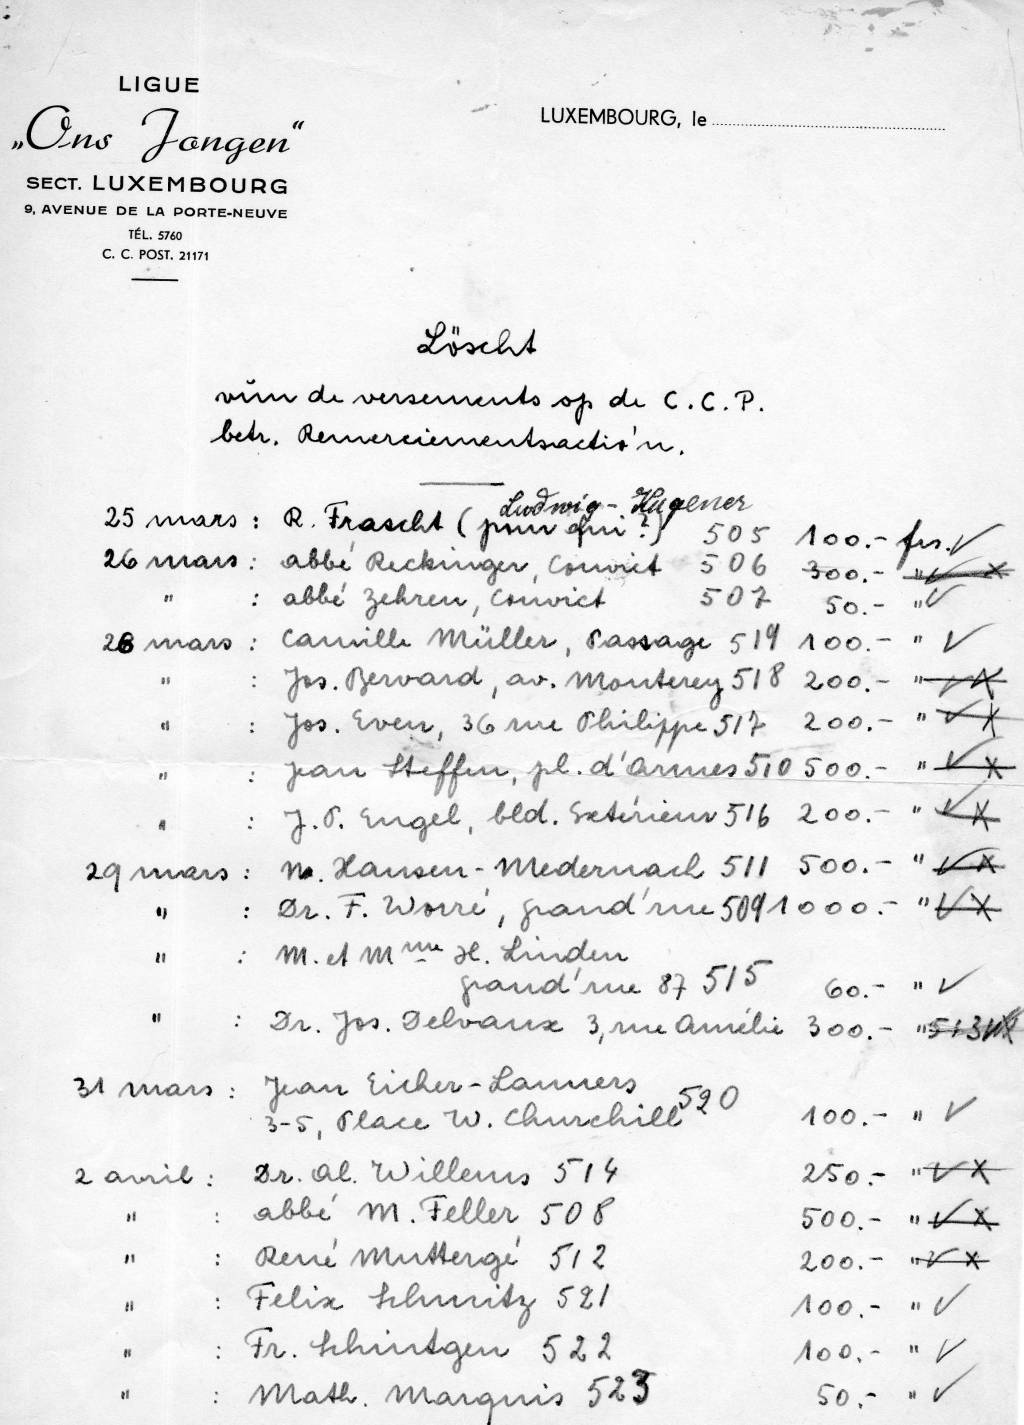 LIGUE
„Ons Jongen“
SECT. LUXEMBOURG
9, AVENUE DE LA PORTE-NEUVE
TÉL. 5760
C. C. POST. 21171
LUXEMBOURG, le
Löscht
vŭn de versements op de C.C.P.
betr. Remerciementsactio'n.
Ludwig - Hagener
25 mars : R. Frascht (pour qui?) 505 100.- frs. ✓
26 mars : abbé Reckinger, Convict 506 300.- " ✓ X
" : abbé Zehren, Convict 507 50.- " ✓
28 mars : Camille Müller, Passage 519 100.- " ✓
" : Jos. Bervard, av. Monterey 518 200.- " ✓ X
" : Jos. Even, 36 rue Philippe 517 200.- " ✓ X
" : Jean Steffen, pl. d'Armes 510 500.- " ✓ X
" : J.P. Engel, bld. Extérieur 516 200.- " ✓ X
29 mars : N. Hansen-Medernach 511 500.- " ✓ X
" : Dr. F. Worré, grand'rue 509 1000.- " ✓ X
" : M. et Mme H. Linden
grand'rue 87 515 60.- " ✓
" : Dr. Jos. Delvaux 3, rue Amélie 300.- " 513 ✓ X
31 mars : Jean Eicher-Lanners
3-5, Place W. Churchill 520 100.- " ✓
2 avril : Dr. Al. Willems 514 250.- " ✓ X
" : abbé M. Feller 508 500.- " ✓ X
" : René Muttergé 512 200.- " ✓ X
" : Felix Schmitz 521 100.- " ✓
" : Fr. Schintgen 522 100.- " ✓
" : Math. Marquis 523 50.- " ✓